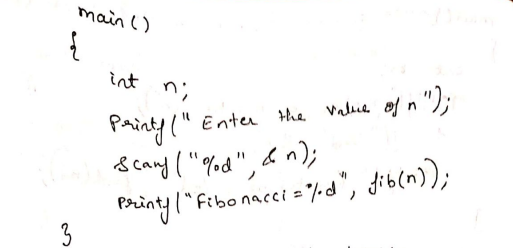 main()
{
int n;
Printf(" Enter the value of n");
Scanf("%d", &n);
Printf("Fibonacci = %d", fib(n));
}